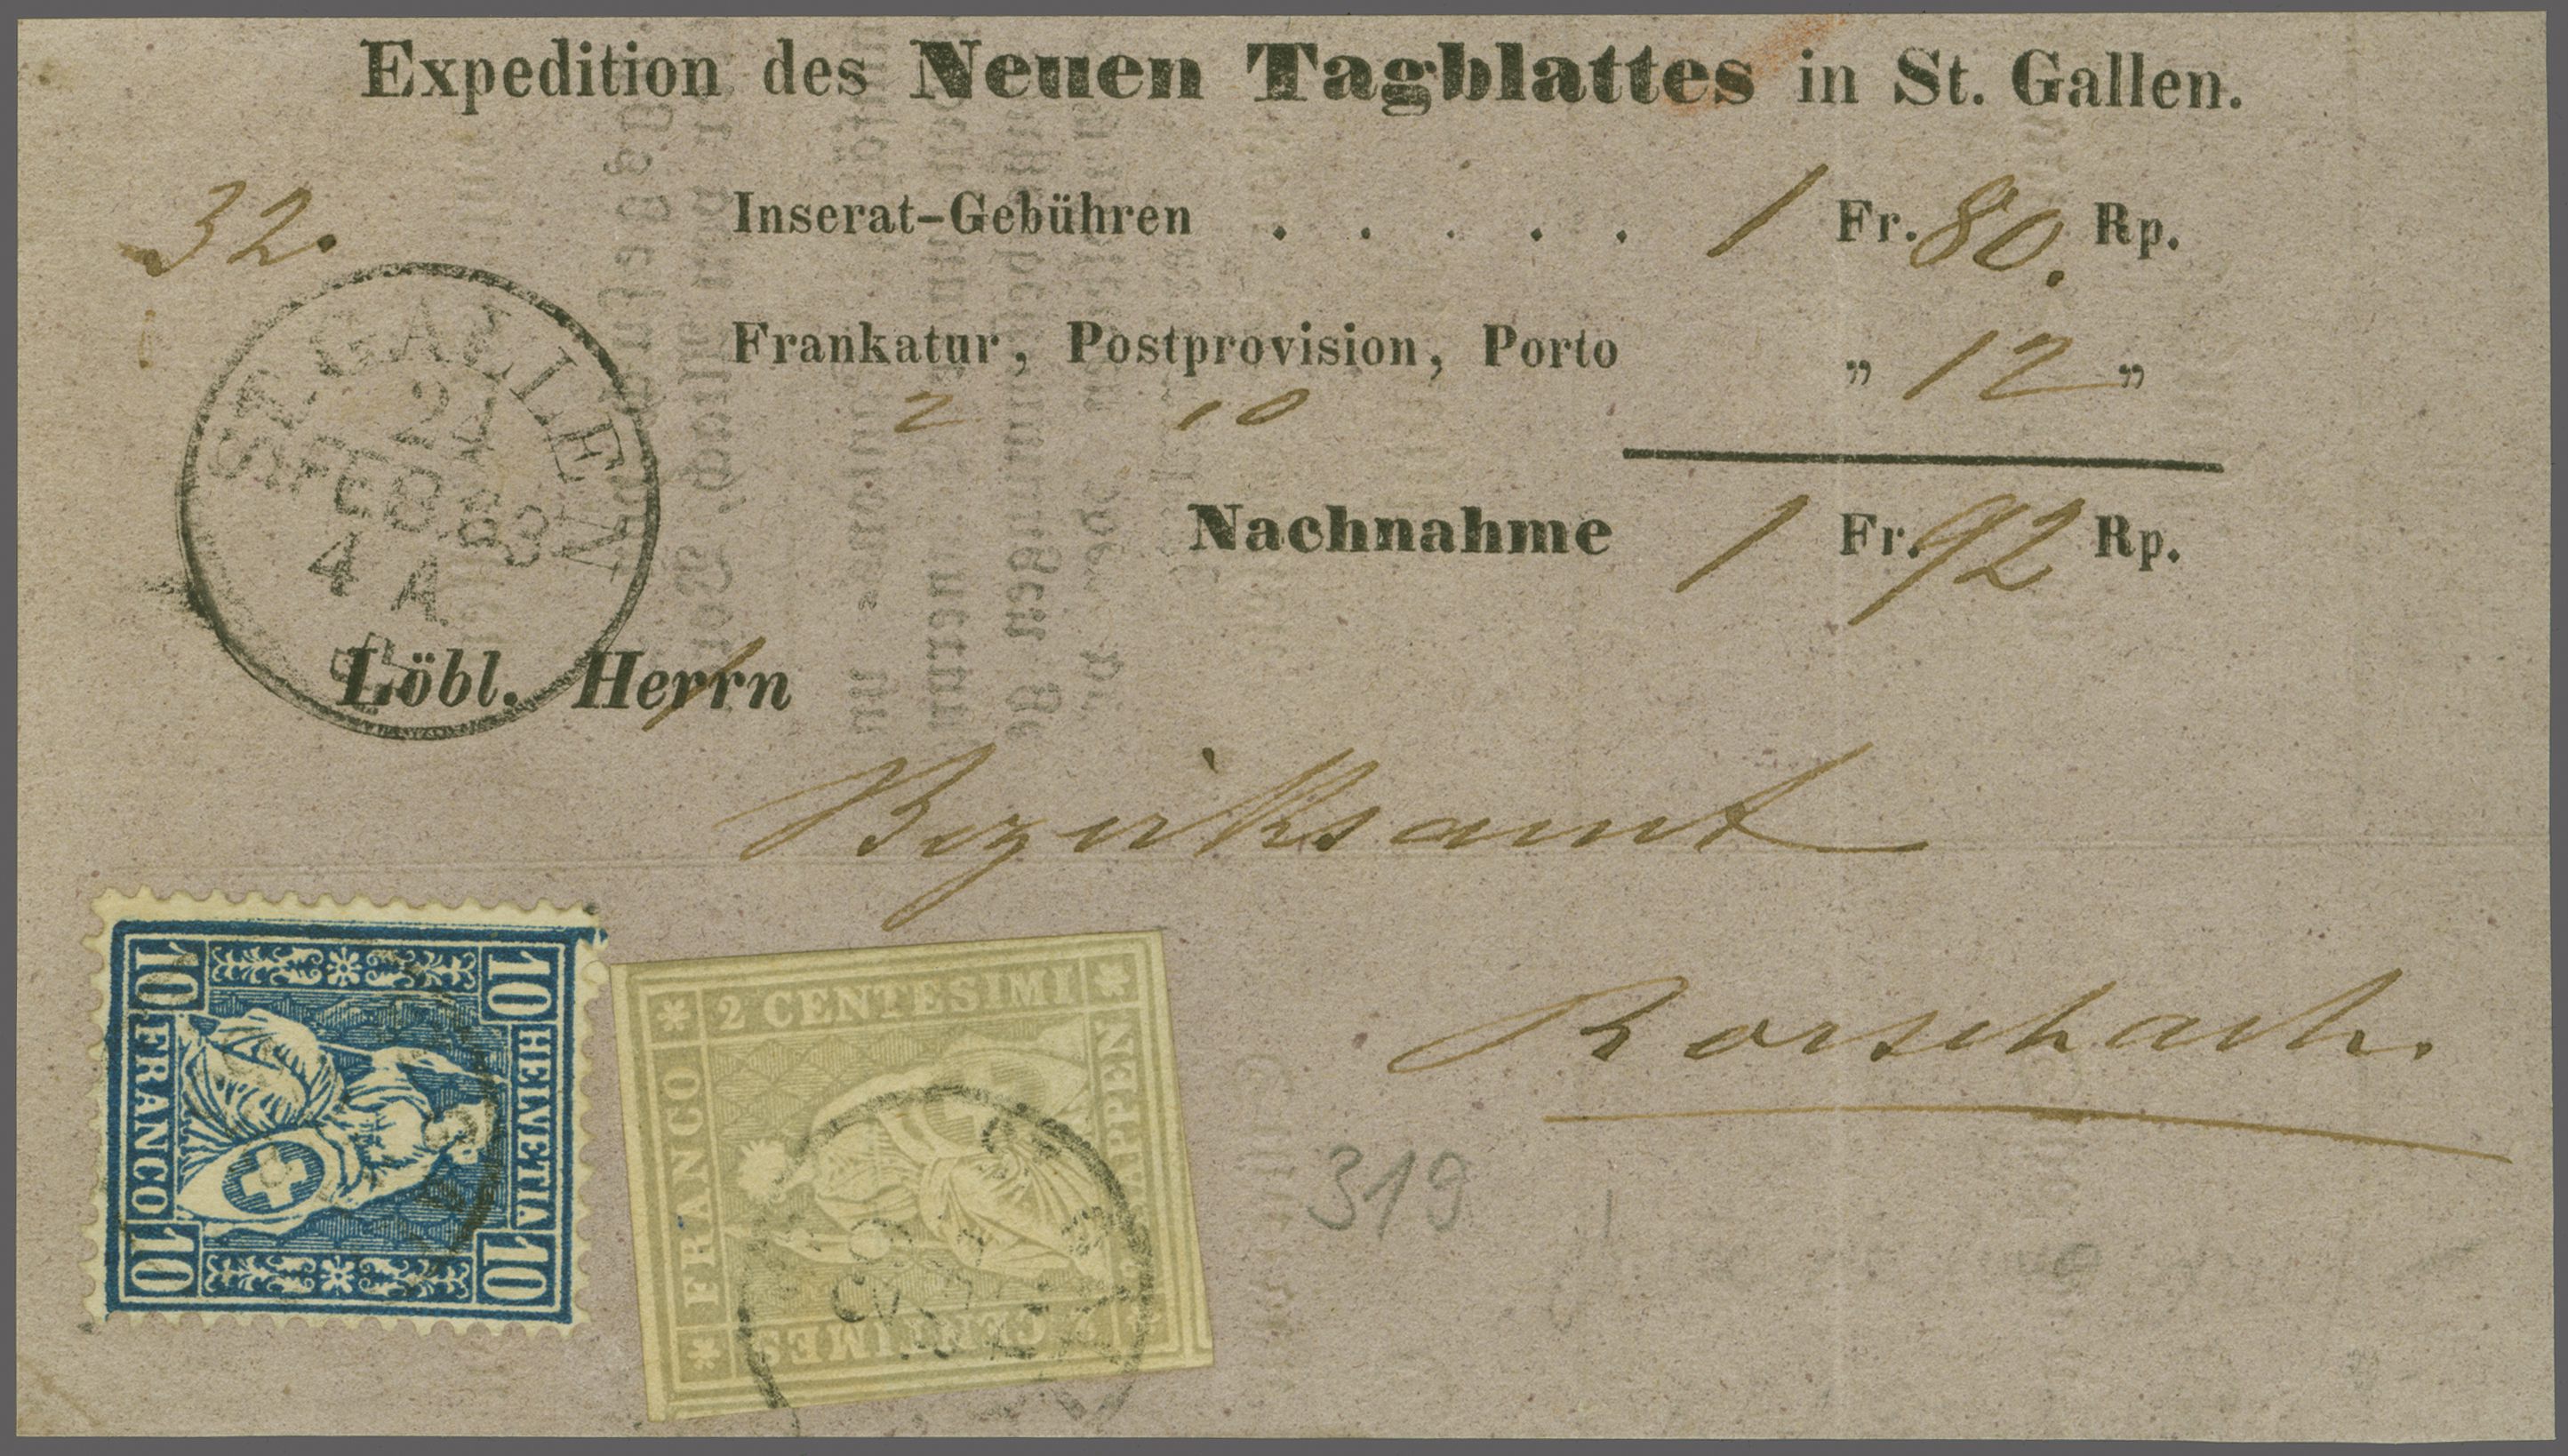 Expedition des Neuen Tagblattes in St. Gallen.
32.
Inserat-Gebühren . . . . . 1 Fr. 80. Rp.
Frankatur, Postprovision, Porto „ 12 „
2 10
Nachnahme 1 Fr. 92 Rp.
ST. GALLEN
24
FEB. 63
4 A
Löbl. Herrn
Bezirksamt
Rorschach.
319
10 HELVETIA 10
10 FRANCO 10
2 CENTESIMI
FRANCO
RAPPEN
2 CENTIMES